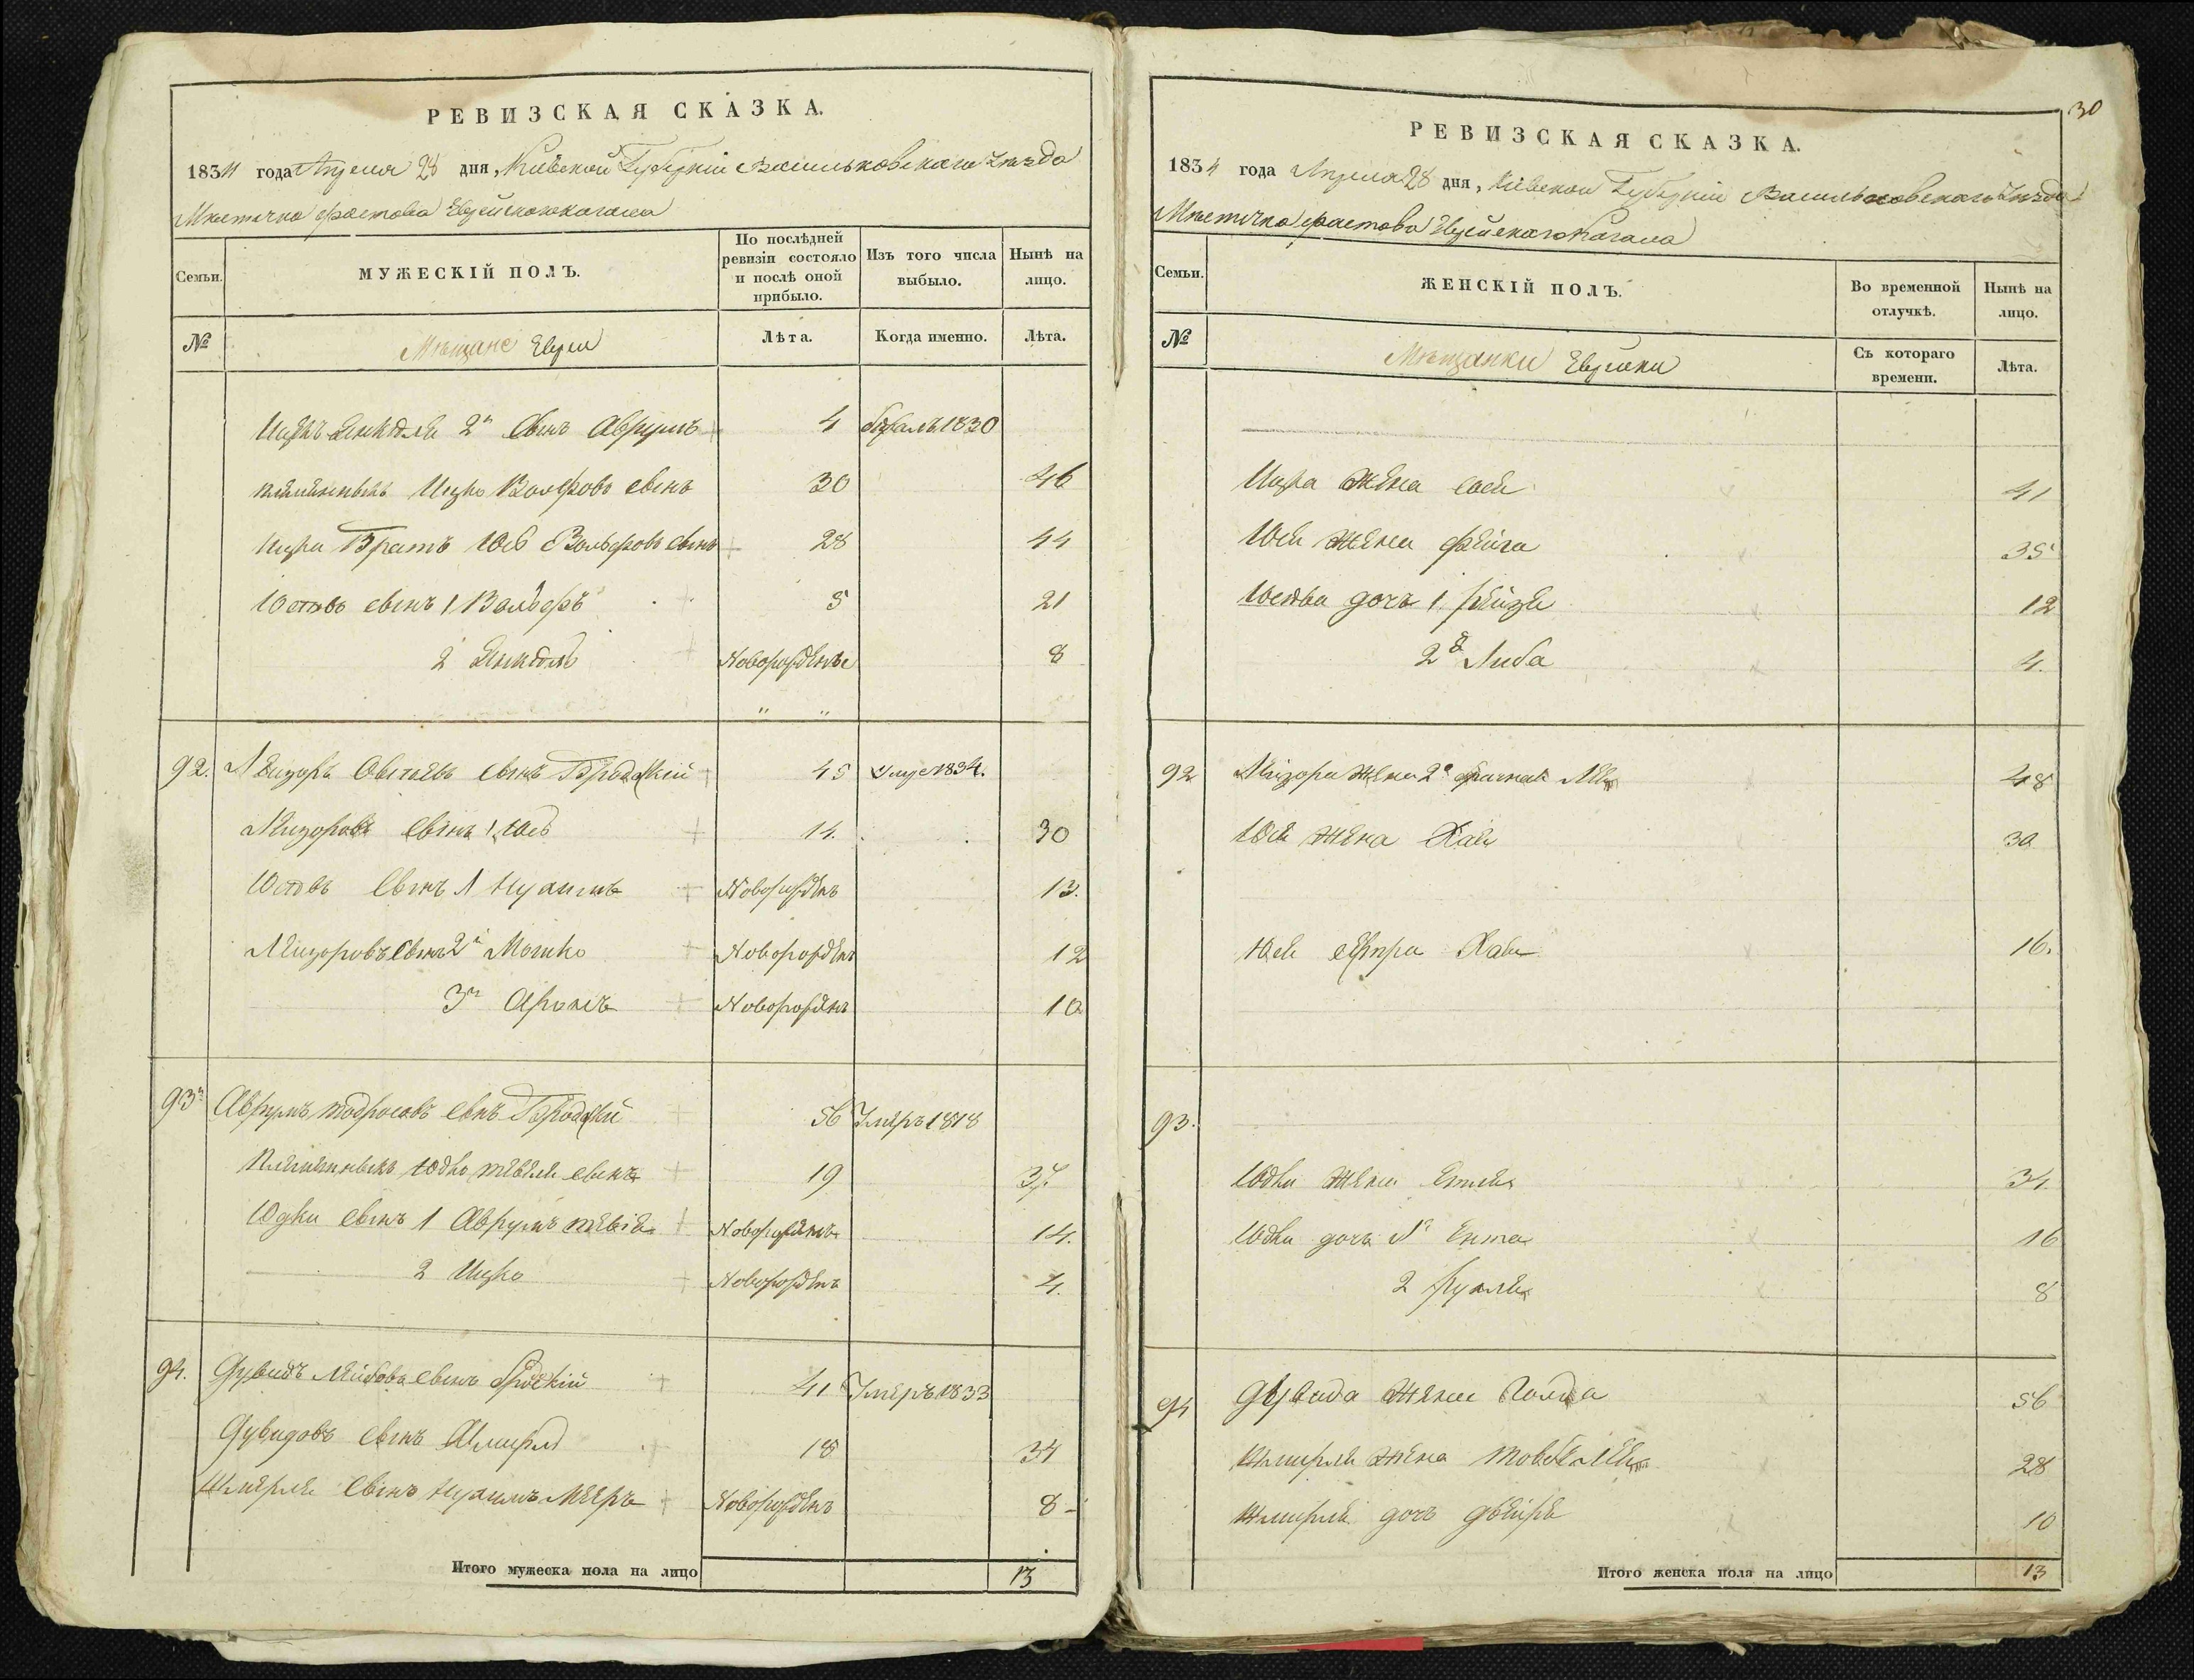 РЕВИЗСКАЯ СКАЗКА.
1834 года Апреля 28 дня, Киевской Губернии Васильковского Уезда
Местечка Фастова Еврейского Кагала
Семьи.
МУЖЕСКІЙ ПОЛЪ.
По послѣдней ревизіи состояло и послѣ оной прибыло.
Изъ того числа выбыло.
Нынѣ на лицо.
№
Мещане Евреи
Лѣта.
Когда именно.
Лѣта.
Ицка Янкеля 2й сынъ Аврумъ 4 1830
племянникъ Ицко Волфовъ сынъ 30 46
Ицка Братъ Юсь Вольфовъ сынъ 28 44
Юсовъ сынъ 1 Вольфъ 5 21
2 Янкель Новорожденъ 8
" "
92. Лейзоръ сынъ Бродскій 45 Умре 1834.
Лейзоровъ сынъ 1 Юсь 14. 30
Юсовъ сынъ 1 Нухимъ Новорожденъ 13.
Лейзоровъ сынъ 2й Мошко Новорожденъ 12
3й Аронъ Новорожденъ 10
93 Аврумъ Тодросовъ сынъ Бродскій 56 Умеръ 1818
Племянникъ Юдко сынъ 19 37.
Юдки сынъ 1 Аврумъ Новорожденъ 14.
2 Ицко Новорожденъ 4.
94. Дувидъ Лейбовъ сынъ Бродскій 41 Умеръ 1833
Дувидовъ сынъ Шмерль 18 34
Шмерля сынъ Нухимъ Мееръ Новорожденъ 8
Итого мужеска пола на лицо 13
30
РЕВИЗСКАЯ СКАЗКА.
1834 года Апреля 28 дня, Киевской Губернии Васильковского Уезда
Местечка Фастова Еврейского Кагала
Семьи.
ЖЕНСКІЙ ПОЛЪ.
Во временной отлучкѣ.
Нынѣ на лицо.
№
Мещанки Еврейки
Съ котораго времени.
Лѣта.
Ицка жена 41
Юся жена Фейга 35
Юсова дочь 1 Рейзя 12
2я Либа 4.
92 Лейзора жена 2 48
Юся жена Хая 30
Юся сестра Хава 16.
93.
Юдки жена 34
Юдки дочь 1 Ента 16
2 Рухля 8
94 Дувида жена Голда 56
Шмерля жена 28
Шмерля дочь Двейра 10
Итого женска пола на лицо 13